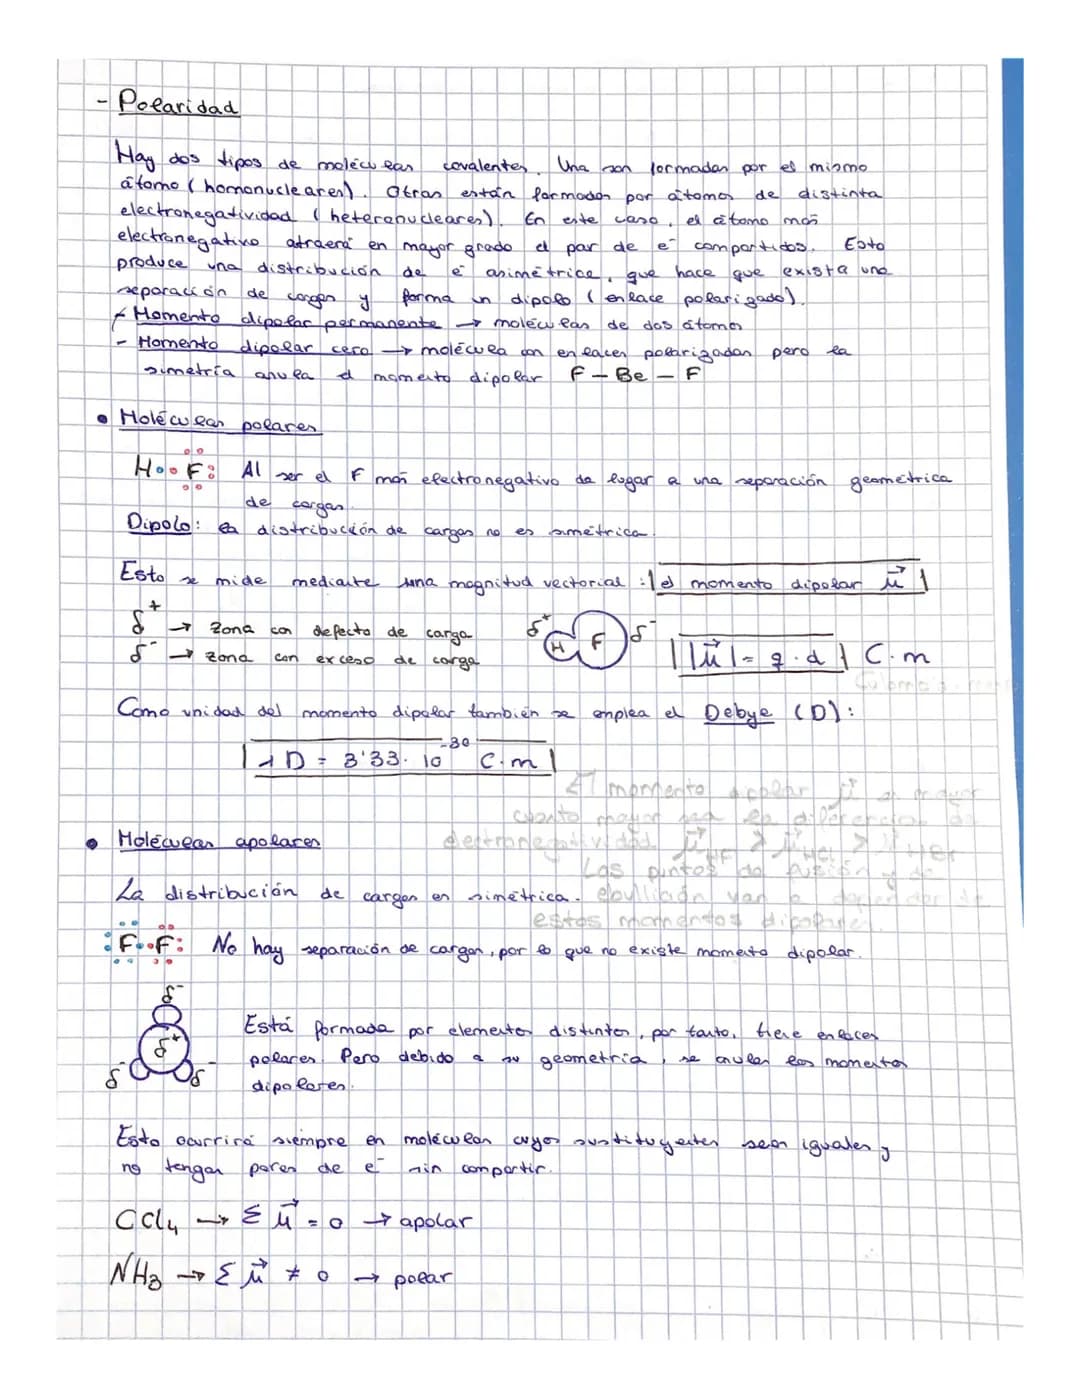 - Polaridad
Hay dos tipos de moléculas covalentes. Una son formadas por el mismo
átomo (homonucleares). Otras están formadas por átomos de distinta
electronegatividad (heteronucleares). En este caso, el átomo más
electronegativo atraerá en mayor grado el par de e⁻ compartidos. Esto
produce una distribución de e⁻ asimétrica, que hace que exista una
separación de cargas y forma un dipolo (enlace polarizado).
- Momento dipolar permanente → moléculas de dos átomos
- Momento dipolar cero → molécula con enlaces polarizados pero la
simetría anula el momento dipolar F - Be - F
• Moléculas polares
H F: Al ser el F más electronegativo da lugar a una separación geométrica
de cargas.
Dipolo: la distribución de cargas no es simétrica.
Esto se mide mediante una magnitud vectorial: el momento dipolar μ⃗
δ⁺ → zona con defecto de carga
δ⁻ → zona con exceso de carga
δ⁺ H F δ⁻
|μ⃗| = q · d C·m
Culombio · metro
Como unidad del momento dipolar también se emplea el Debye (D):
1 D = 3'33 · 10⁻³⁰ C·m
El momento dipolar μ⃗ es mayor
cuanto mayor sea la diferencia de
electronegatividad. μ⃗HF > μ⃗HCl > μ⃗HBr
Los puntos de fusión y de
ebullición van a depender de
estos momentos dipolares.
• Moléculas apolares
La distribución de cargas es simétrica.
:F F: No hay separación de cargas, por lo que no existe momento dipolar.
δ⁻
δ⁺
δ⁻ δ⁻
Está formada por elementos distintos, por tanto, tiene enlaces
polares. Pero debido a su geometría, se anulan los momentos
dipolares.
Esto ocurrirá siempre en moléculas cuyos sustituyentes sean iguales y
no tengan pares de e⁻ sin compartir.
CCl₄ → Σ μ⃗ = 0 → apolar
NH₃ → Σ μ⃗ ≠ 0 → polar